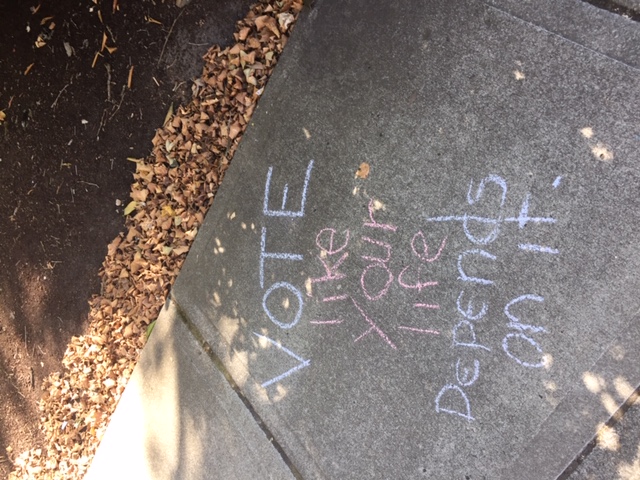 VOTE
like
Your
life
Depends
on it.